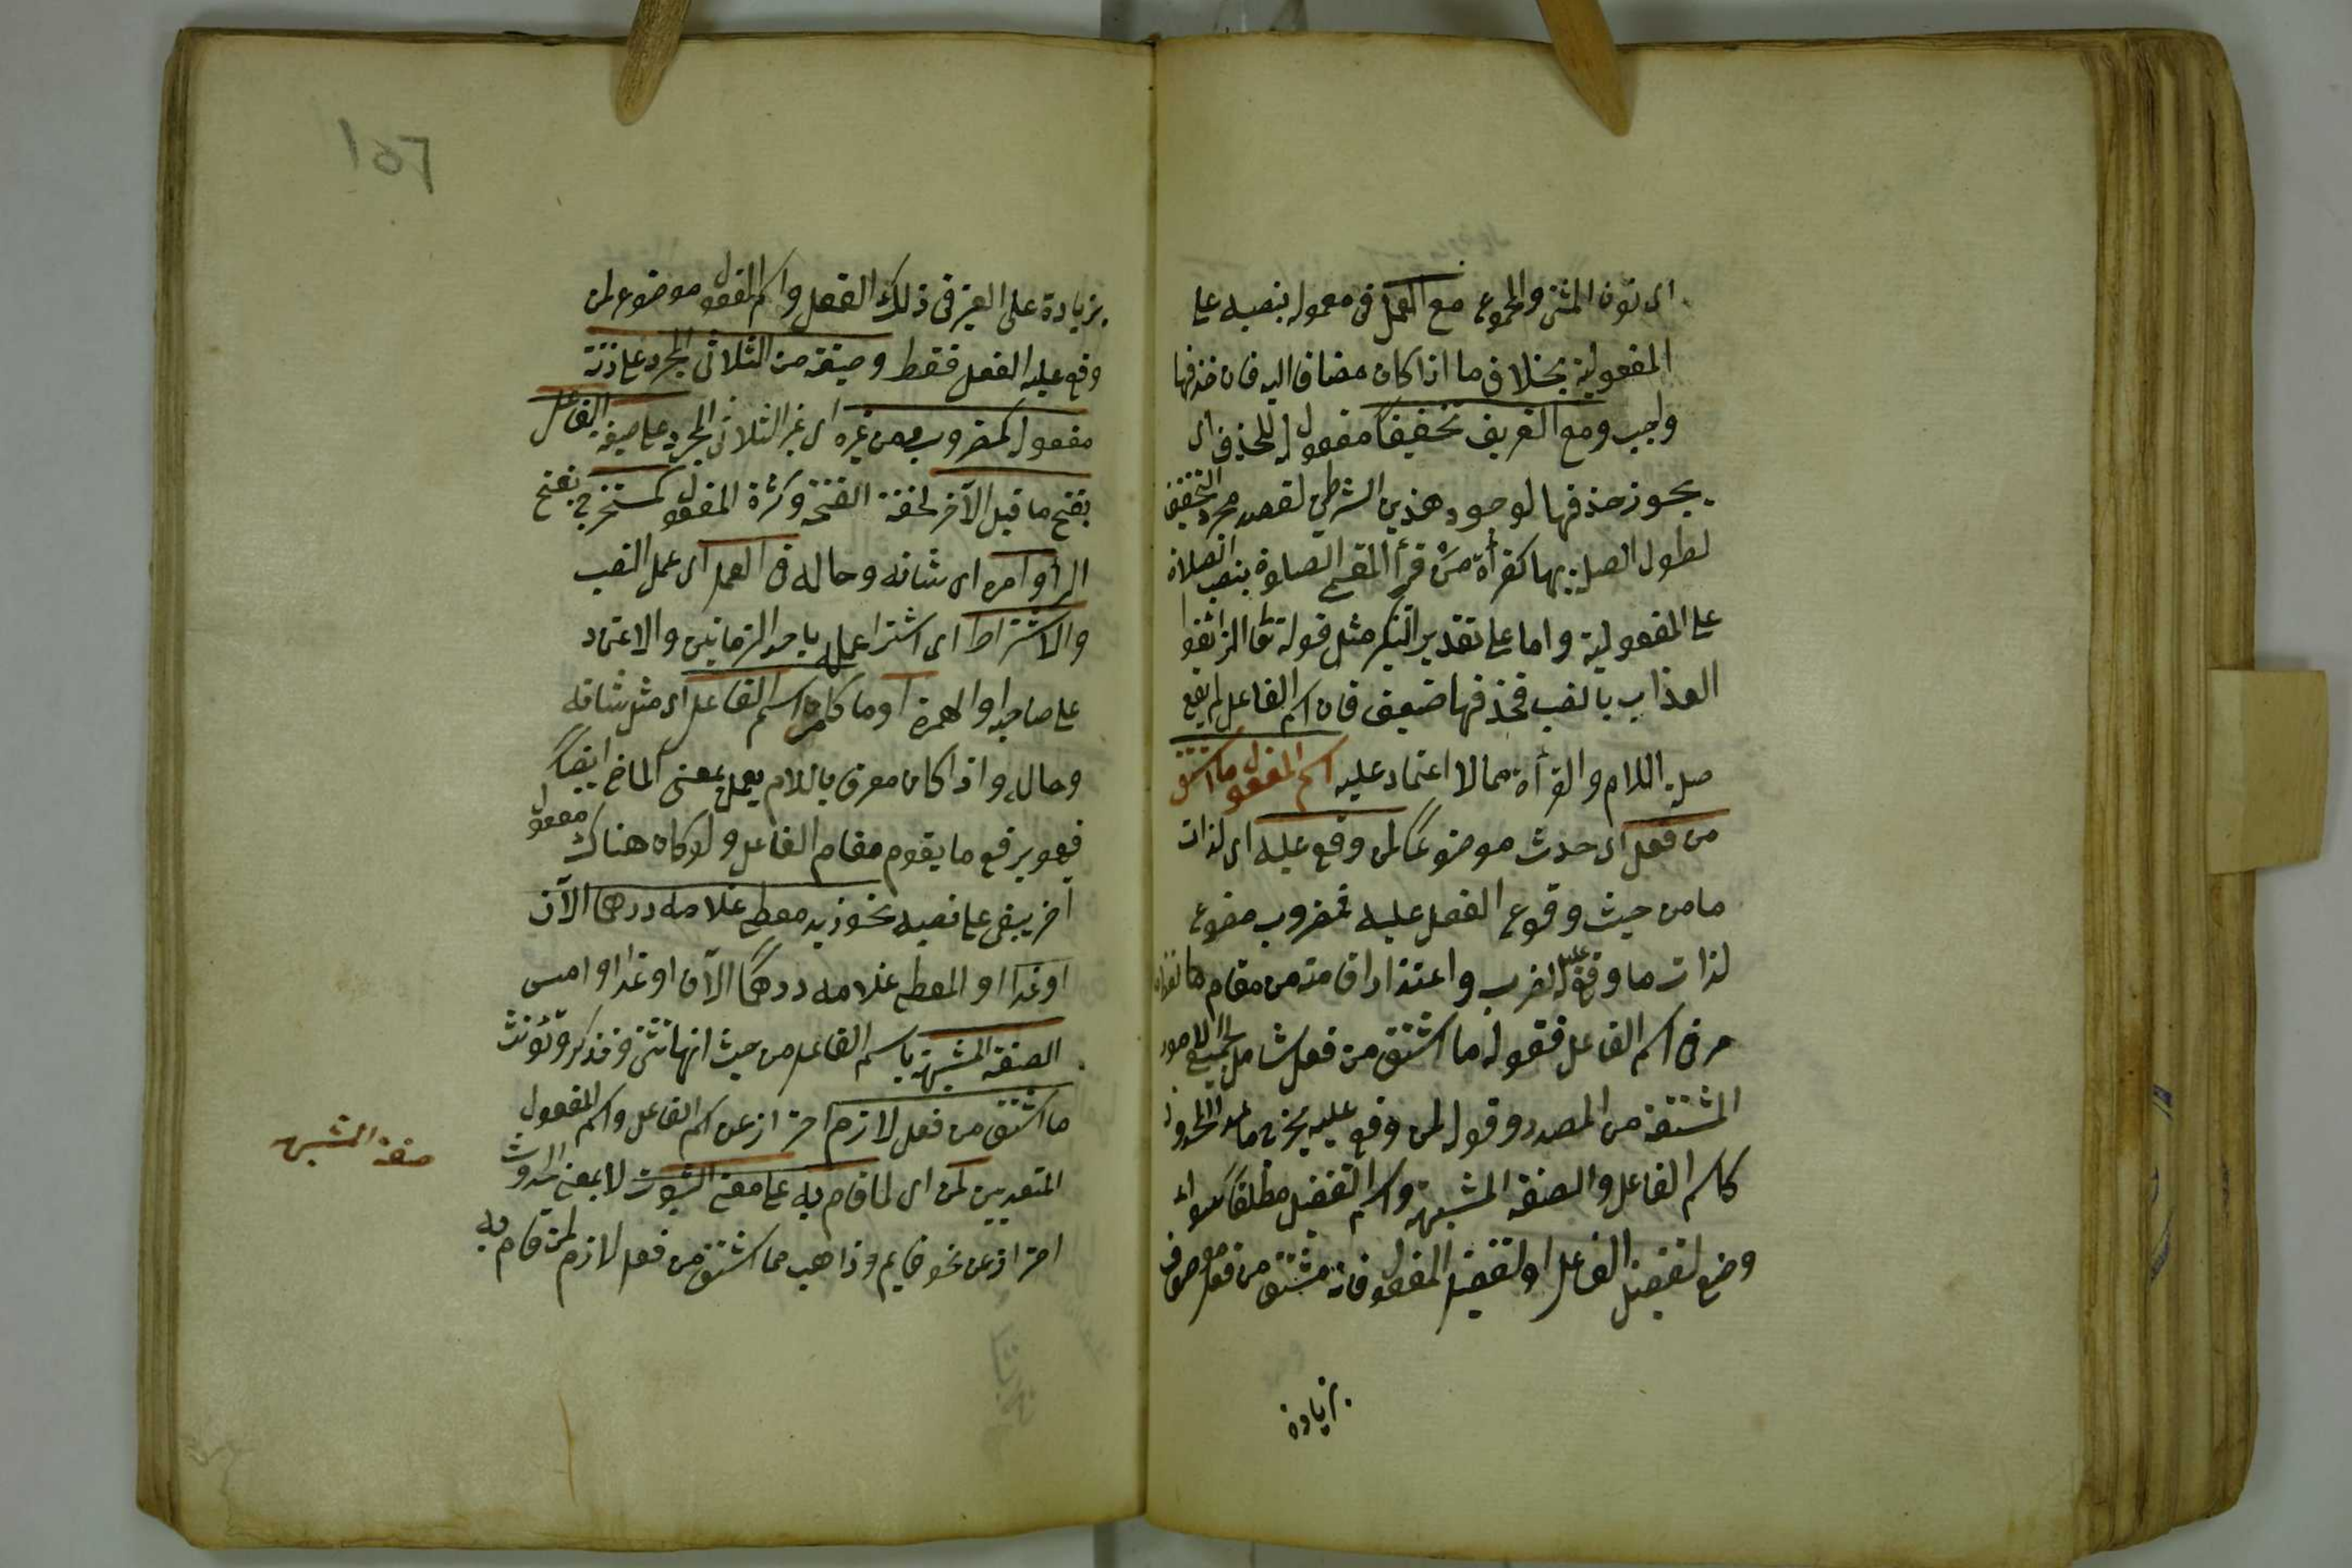 اى نون المثنى والمجموع مع العمل فى معموله بنصبه على
المفعولية بخلاف ما اذا كان مضافا اليه فان حذفها
واجب ومع التعريف تخفيفا مفعول له للحذف اى
يجوز حذفها لوجود هذين الشرطين لقصد مجرد التخفيف
لطول الصلة بها كقرأة من قرأ المقيمى الصلوة بنصب الصلاة
على المفعولية واما على تقدير التنكير مثل قوله تعا لذائقوا
العذاب بالنصب فحذفها ضعيف فان اسم الفاعل لم يقع
صلة اللام والقرأة مما لا اعتماد عليه اسم المفعول ما اشتق
من فعل اى حدث موضوعا لمن وقع عليه اى لذات
ما من حيث وقوع الفعل عليه فمضروب موضوع
لذات ما وقع عليه الضرب واعتذار اقامة من مقام ما
فى اسم الفاعل فقوله ما اشتق من فعل شامل لجميع الامور
المشتقة من المصدر وقوله لمن وقع عليه يخرج ما عدا المحدود
كاسم الفاعل والصفة المشبهة واسم التفضيل مطلقا سواء
وضع لتفضيل الفاعل او لتفضيل المفعول فانه مشتق من فعل موصوف
بزيادة
١٥٦
بزيادة على الغير فى ذلك الفعل واسم المفعول موضوع لمن
وقع عليه الفعل فقط وصيغته من الثلاثى المجرد على زنة
مفعول كمضروب ومن غيره اى غير الثلاثى المجرد على صيغة الفاعل
بفتح ما قبل الآخر لخفة الفتحة وكثرة المفعول كمستخرج بفتح
الراء وامره اى شانه وحاله فى العمل اى عمل النصب
والاشتراط اى اشتراط عمله باحد الزمانين والاعتماد
على صاحبه او الهمزة او ما كامر اسم الفاعل اى مثل شانه
وحاله واذا كان معرفا باللام يعمل بمعنى الماضى ايضا
فهو يرفع ما يقوم مقام الفاعل ولو كان هناك مفعول
آخر يبقى على نصبه نحو زيد معطى غلامه درهما الآن
او غدا او المعطى غلامه درهما الآن او غدا او امس
الصفة المشبهة باسم الفاعل من حيث انها تثنى وتذكر وتؤنث
ما اشتق من فعل لازم احتراز عن اسم الفاعل واسم المفعول
المتعديين لمن اى لما قام به على معنى الثبوت لا بمعنى الحدوث
احتراز عن نحو قايم وذاهب مما اشتق من فعل لازم لمن قام به
صفة المشبهة